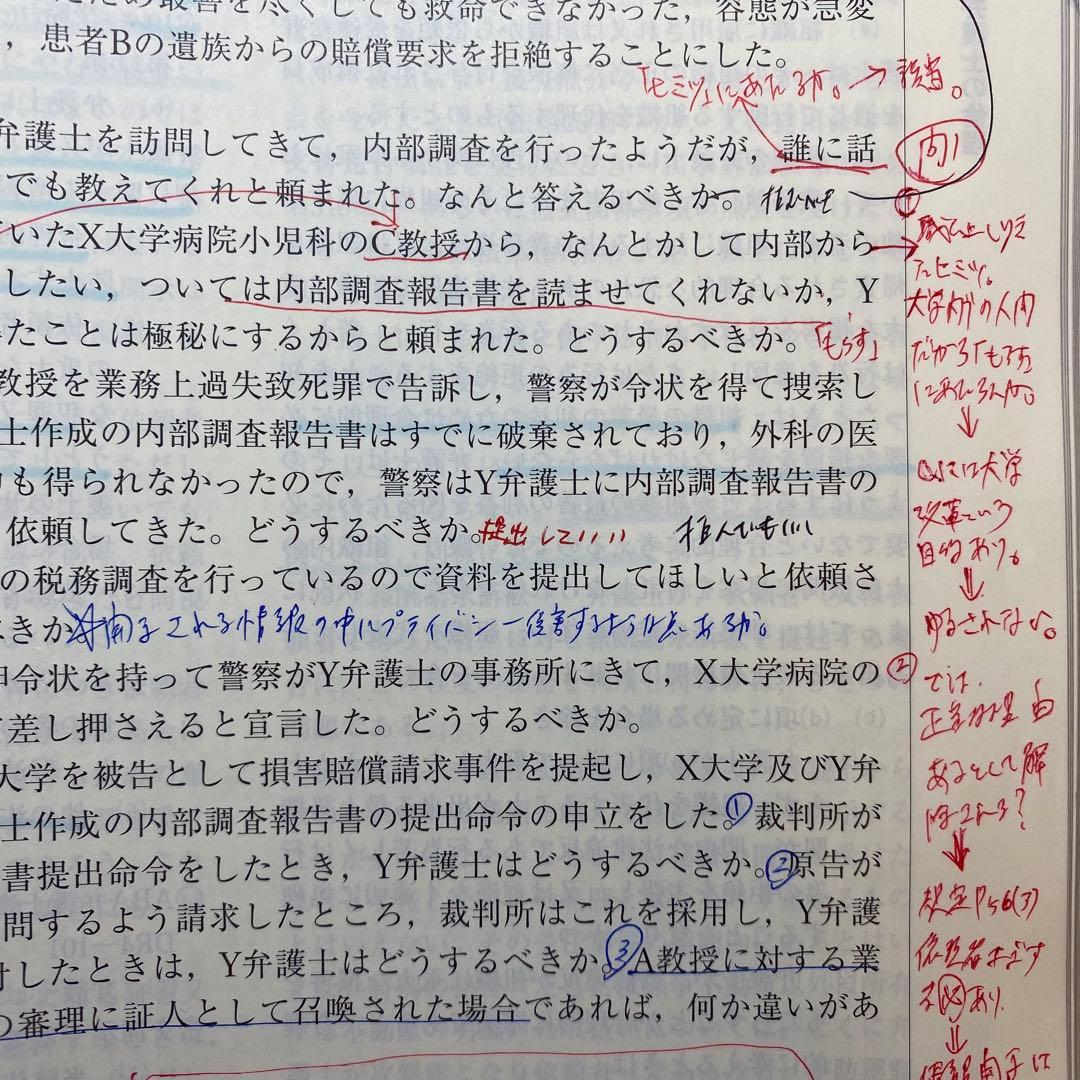 ため最善を尽くしても救命できなかった，容態が急変
，患者Bの遺族からの賠償要求を拒絶することにした。
「ヒミツ」にあたるか。→該当。
問1
弁護士を訪問してきて，内部調査を行ったようだが，誰に話
でも教えてくれと頼まれた。なんと答えるべきか。拒むべき
いたX大学病院小児科のC教授から，なんとかして内部から
したい，ついては内部調査報告書を読ませてくれないか，Y
たことは極秘にするからと頼まれた。どうするべきか。「もらす」
教授を業務上過失致死罪で告訴し，警察が令状を得て捜索し
士作成の内部調査報告書はすでに破棄されており，外科の医
も得られなかったので，警察はY弁護士に内部調査報告書の
依頼してきた。どうするべきか。提出していい 拒んでもいい
の税務調査を行っているので資料を提出してほしいと依頼さ
きか。開示される情報の中にプライバシー侵害するような点あるか。
令状を持って警察がY弁護士の事務所にきて，X大学病院の
差し押さえると宣言した。どうするべきか。
大学を被告として損害賠償請求事件を提起し，X大学及びY弁
士作成の内部調査報告書の提出命令の申立をした。①裁判所が
書提出命令をしたとき，Y弁護士はどうするべきか。②原告が
問するよう請求したところ，裁判所はこれを採用し，Y弁護
したときは，Y弁護士はどうするべきか。③A教授に対する業
の審理に証人として召喚された場合であれば，何か違いがあ
①
職ム上しりえ
たヒミツ。
大学内の人間
だから「もらす」
にあたらんか。
↓
Qに大学
改革という
目的あり。
↓
ゆるされない。
② では、
正当な理由
あるとして解
除こんろ？
↓
規定P56(3)
依頼者おぼす
あり
↓